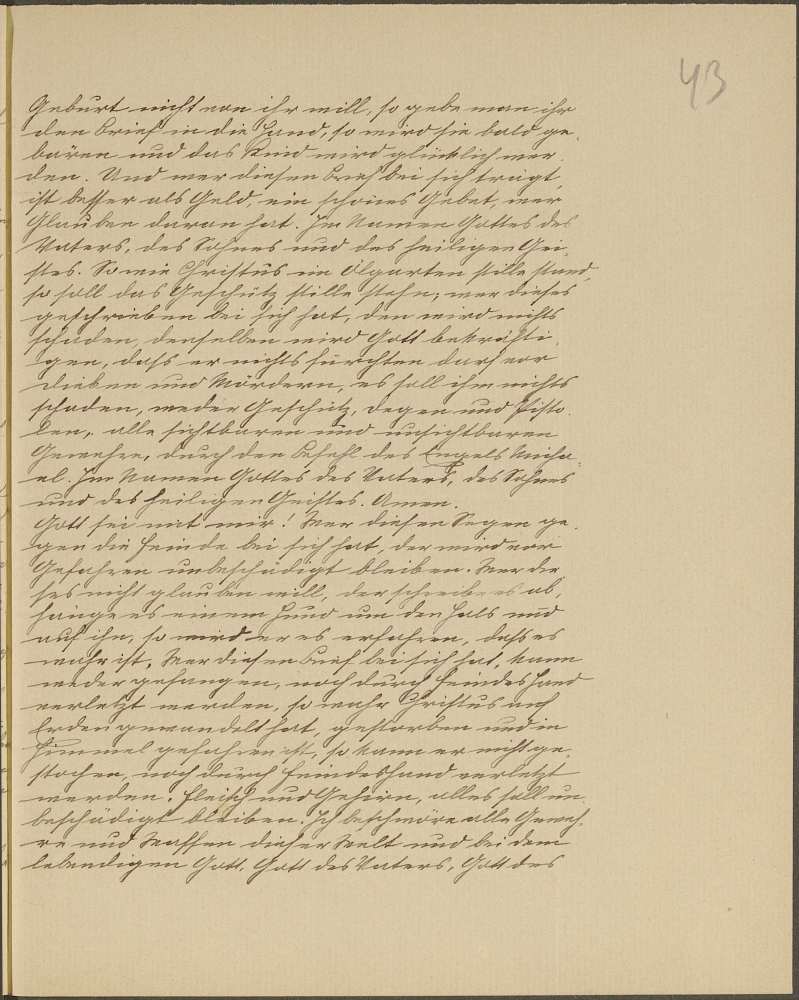 43
Geburt nicht von ihr will, so gebe man ihr
den Brief in die Hand, so wird sie bald ge-
bären und das Kind wird glücklich wer-
den. Und wer diesen Brief bei sich trägt,
ist besser als Geld, ein schönes Gebet, wer
Glauben daran hat. Im Namen Gottes des
Vaters, des Sohnes und des heiligen Gei-
stes. So wie Christus im Ölgarten stille stand,
so soll das Geschütz stille stehn; wer dieses
geschrieben bei sich hat, den wird nichts
schaden, denselben wird Gott bekräfti-
gen, daß er nichts fürchten darf vor
Dieben und Mördern, es soll ihm nichts
schaden, weder Geschütz, Degen und Pisto-
len, alle sichtbaren und unsichtbaren
Gewehre, durch den Befehl des Engels Micha-
el. Im Namen Gottes des Vaters, des Sohnes
und des heiligen Geistes. Amen.
Gott sei mit mir! Wer diesen Segen ge-
gen die Feinde bei sich hat, der wird vor
Gefahren unbeschädigt bleiben. Wer die-
ses nicht glauben will, der schreibe es ab,
hänge es einem Hund um den Hals und
auf ihn, so wird er es erfahren, daß es
wahr ist. Wer diesen Brief bei sich hat, kann
weder gefangen, noch durch Feindes Hand
verletzt werden, so wahr Christus auf
Erden gewandelt hat, gestorben und in
Himmel gefahren ist, so kann er nicht ge-
stochen, noch durch Feindeshand verletzt
werden. Fleisch und Gehirn, alles soll un-
beschädigt bleiben. Ich beschwöre alle Geweh-
re und Waffen dieser Welt und bei dem
lebendigen Gott, Gott des Vaters, Gott des